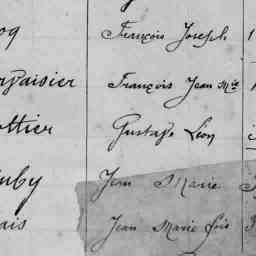 oq François Joseph 1
François Jean Mie
ottier Gustave Leon
uby Jean Marie
ais Jean Marie fois